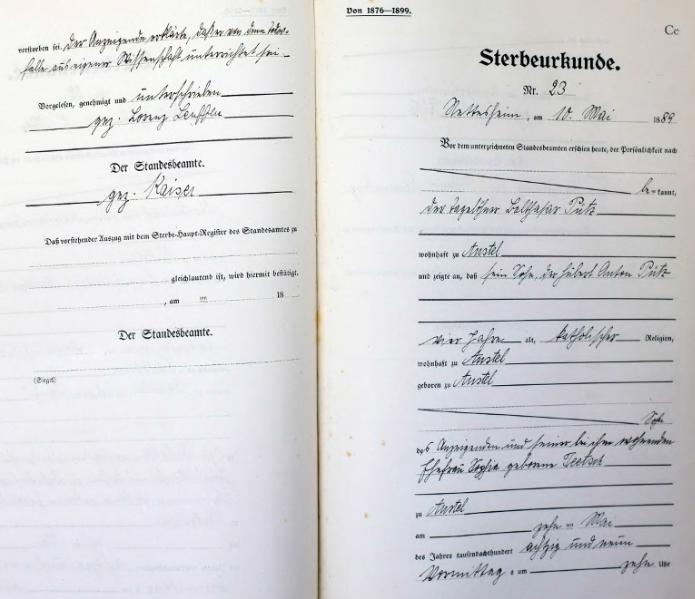 verstorben sei. Der Anzeigende erklärte, daß er von dem Sterbe-
falle aus eigener Wissenschaft unterrichtet sei
Vorgelesen, genehmigt und unterschrieben
gez. Lorenz
Der Standesbeamte.
gez. Kaiser
Daß vorstehender Auszug mit dem Sterbe-Haupt-Register des Standesamtes zu
gleichlautend ist, wird hiermit bestätigt.
, am ten 18
Der Standesbeamte.
(Siegel)
Von 1876—1899.
Ce
Sterbeurkunde.
Nr. 23
Nettesheim, am 10. Mai 1889
Vor dem unterzeichneten Standesbeamten erschien heute, der Persönlichkeit nach
be= kannt,
der Tagelöhner Balthasar Pütz
wohnhaft zu Anstel
und zeigte an, daß sein Sohn, der Hubert Anton Pütz
vier Jahre alt, katholischer Religion,
wohnhaft zu Anstel
geboren zu Anstel
Sohn
des Anzeigenden und seiner bei ihm wohnenden
Ehefrau Sophia geborene
zu Anstel
am zehn ten Mai
des Jahres tausendachthundert achtzig und neun
Vormittag s um zehn Uhr